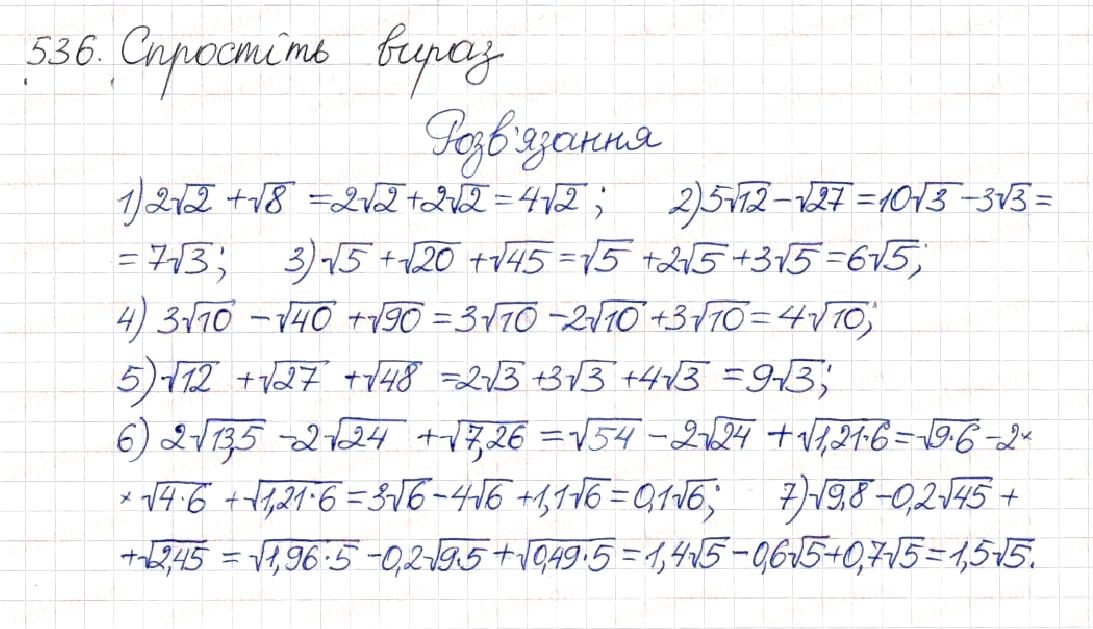 536. Спростіть вираз
Розв'язання
1) 2√2 + √8 = 2√2 + 2√2 = 4√2; 2) 5√12 - √27 = 10√3 - 3√3 =
= 7√3; 3) √5 + √20 + √45 = √5 + 2√5 + 3√5 = 6√5;
4) 3√10 - √40 + √90 = 3√10 - 2√10 + 3√10 = 4√10;
5) √12 + √27 + √48 = 2√3 + 3√3 + 4√3 = 9√3;
6) 2√13,5 - 2√24 + √7,26 = √54 - 2√24 + √1,21·6 = √9·6 - 2×
×√4·6 + √1,21·6 = 3√6 - 4√6 + 1,1√6 = 0,1√6; 7) √9,8 - 0,2√45 +
+ √2,45 = √1,96·5 - 0,2√9·5 + √0,49·5 = 1,4√5 - 0,6√5 + 0,7√5 = 1,5√5.